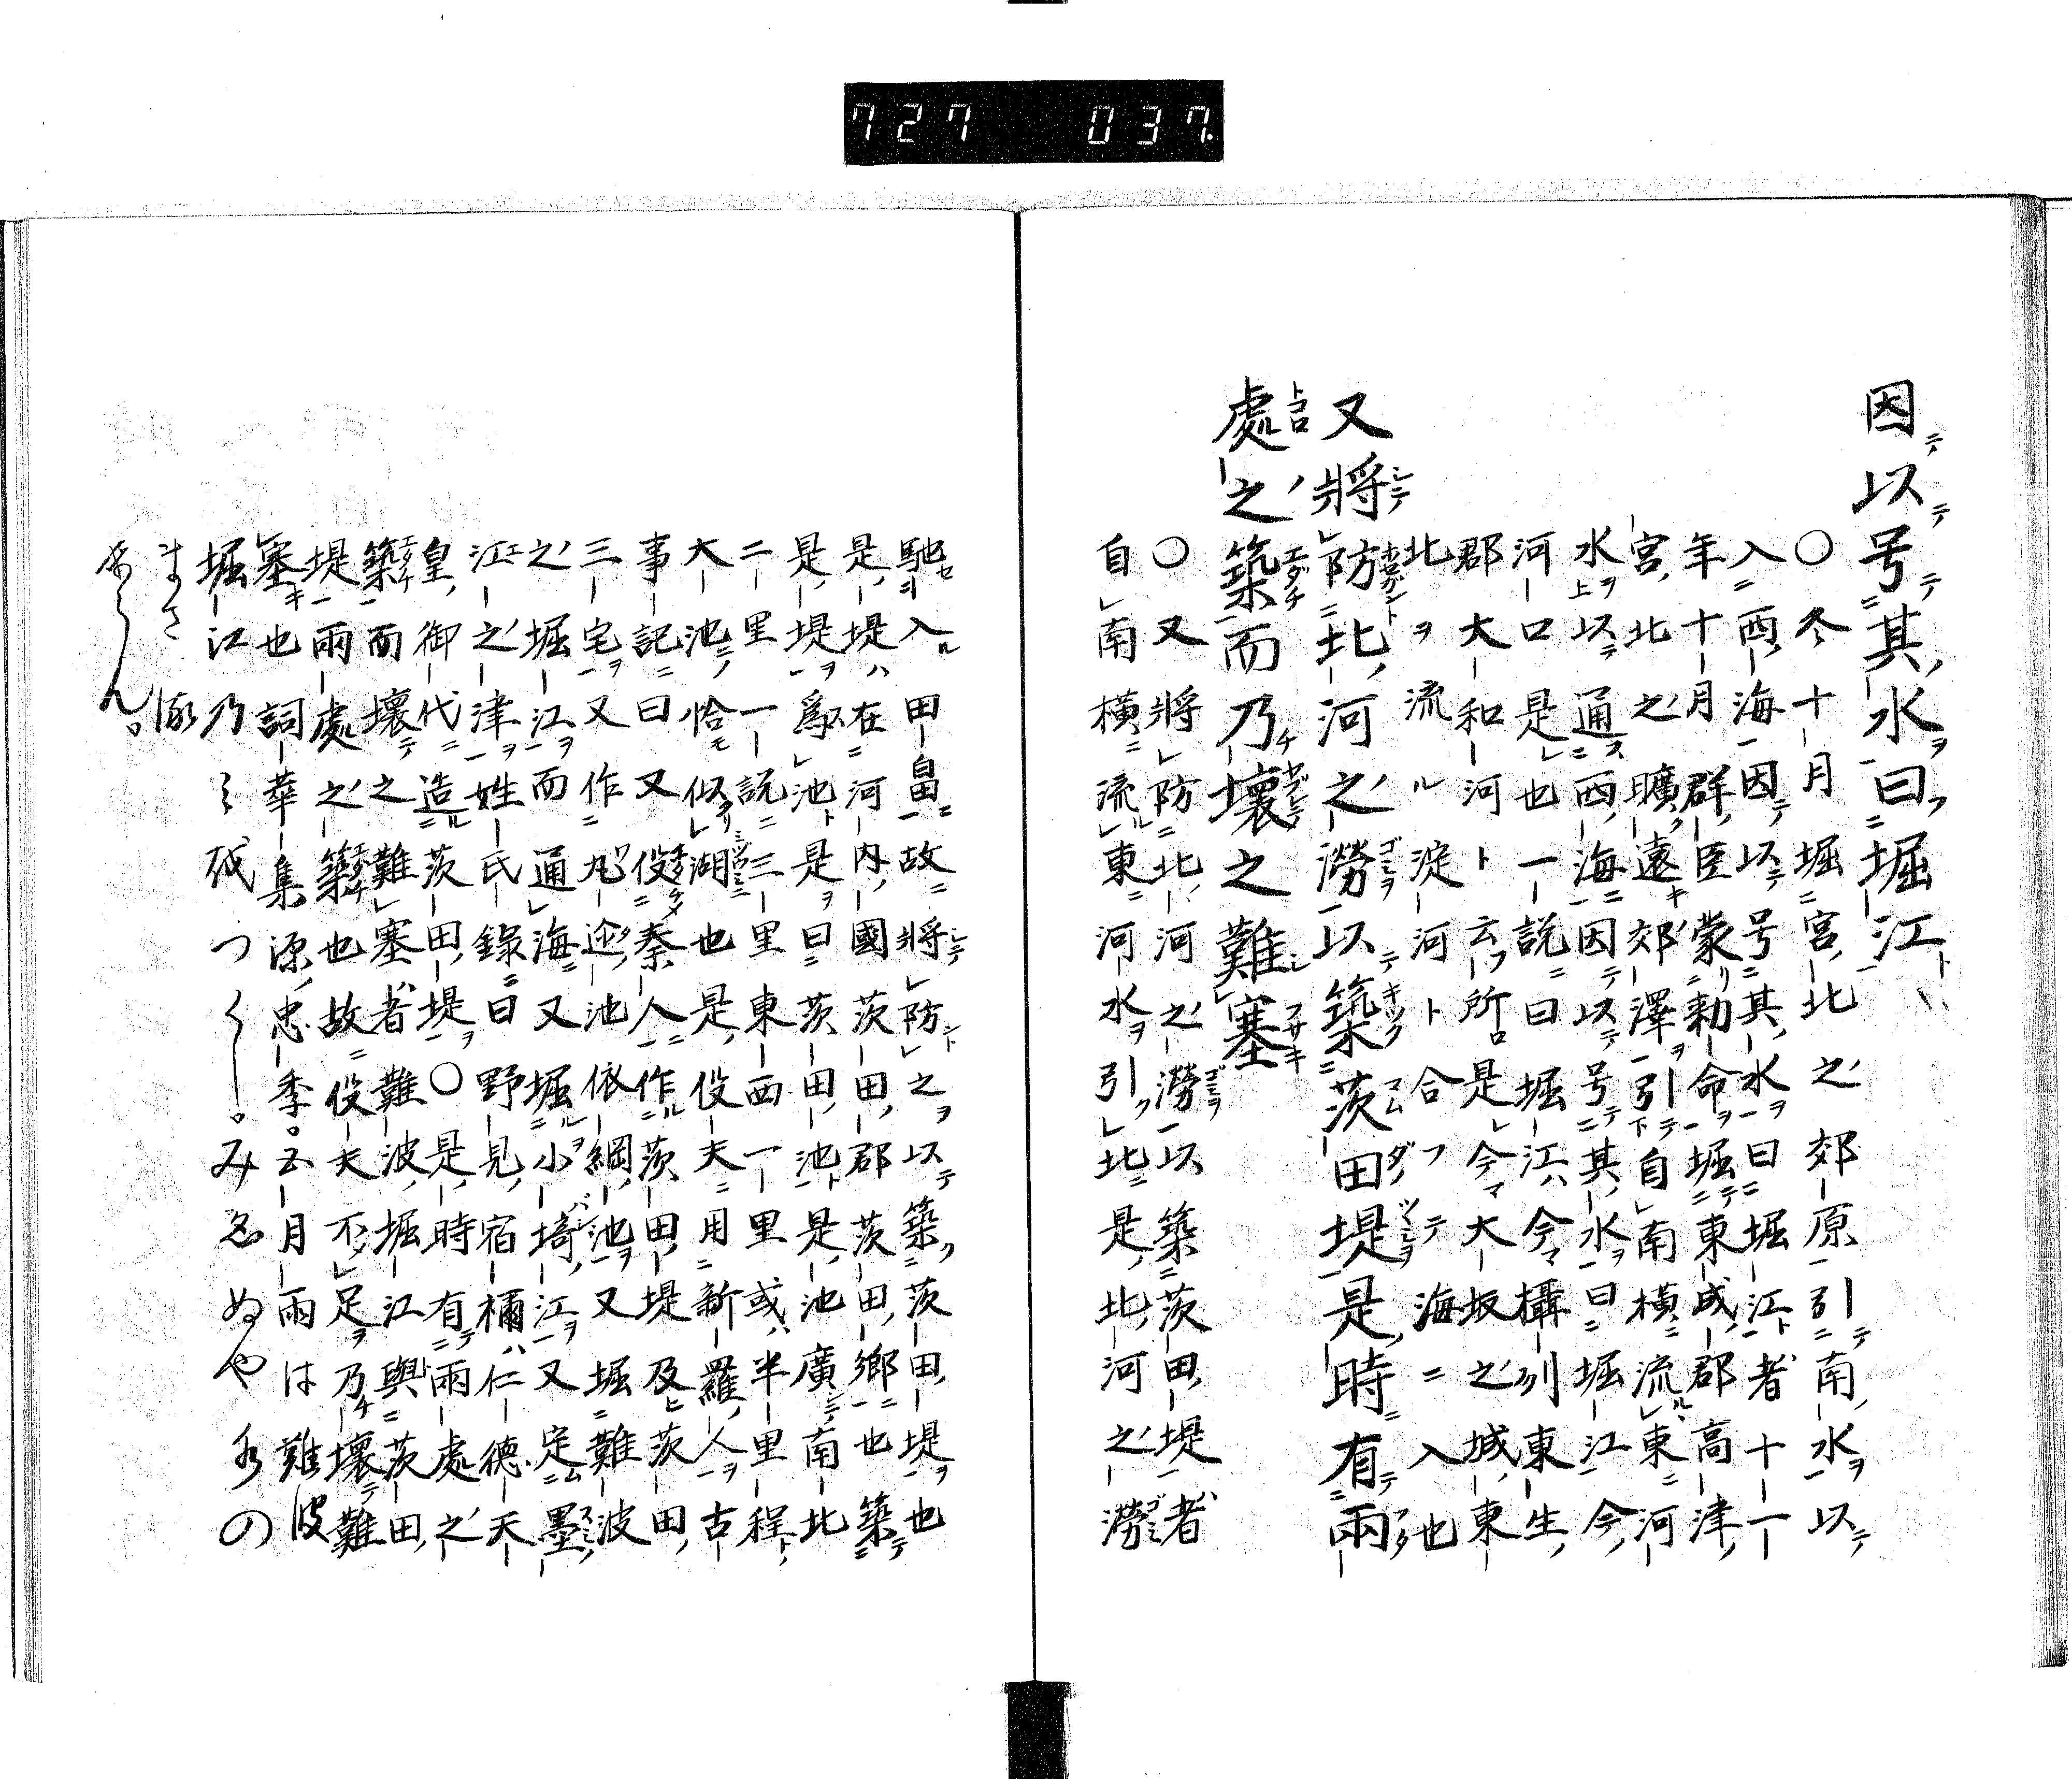 727 037
因以号其水曰堀江
〇冬十月堀宮北之郊原引南水以
入西海因以号其水曰堀江者十一
年十月群臣蒙勅命堀東成郡高津
宮北之曠遠郊澤引自南横流東河
水以通西海因以号其水曰堀江今
河口是也一説曰堀江今攝刕東生
郡大和河ト云所是今大坂之城東
北ヲ流ル淀河ト合フテ海ニ入也
又將防北河之澇以築茨田堤是時有兩
處之築而乃壞之難塞
〇又將防北河之澇以築茨田堤者
自南横流東河水引北是北河之澇
馳入田畠故將防之以築茨田堤也
是堤在河内國茨田郡茨田郷也築
是堤爲池是曰茨田池是池廣南北
二里一説三里東西一里或半里程
大池恰似湖也是役夫用新羅人古
事記曰又役秦人作茨田堤及茨田
三宅又作丸迩池依網池又堀難波
之堀江而通海又堀小埼江又定墨
江之津姓氏録曰野見宿禰仁德天
皇御代造茨田堤〇是時有兩處之
築而壞之難塞者難波堀江與茨田
堤兩處之築也故役夫不足乃壞難
塞也詞華集源忠季。五月雨は難波
堀江乃みをつくし。みえぬや水の
まさる